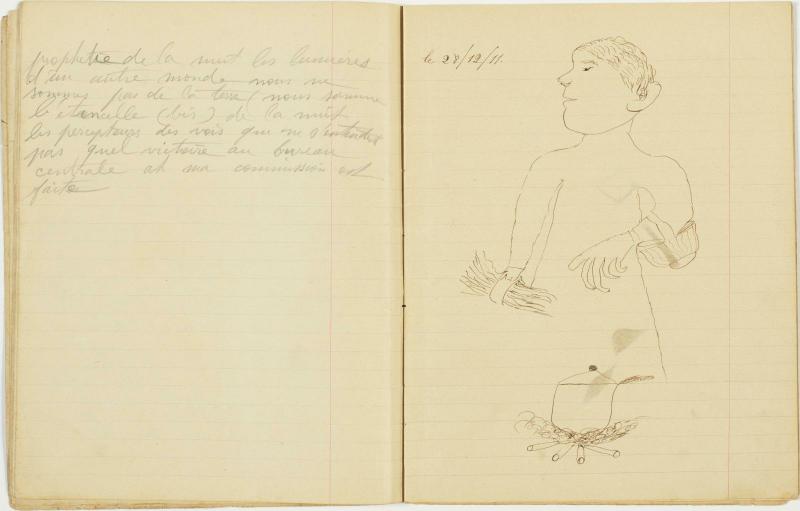 prophetie de la nuit les lumières
d'un autre monde nous ne
sommes pas de la terre (nous somme
l'étincelle (bis) de la nuit
les percepteurs des vois que ne s'entende
pas quel victoire au bureau
centrale ah ma commission est
faite
le 28/12/11.